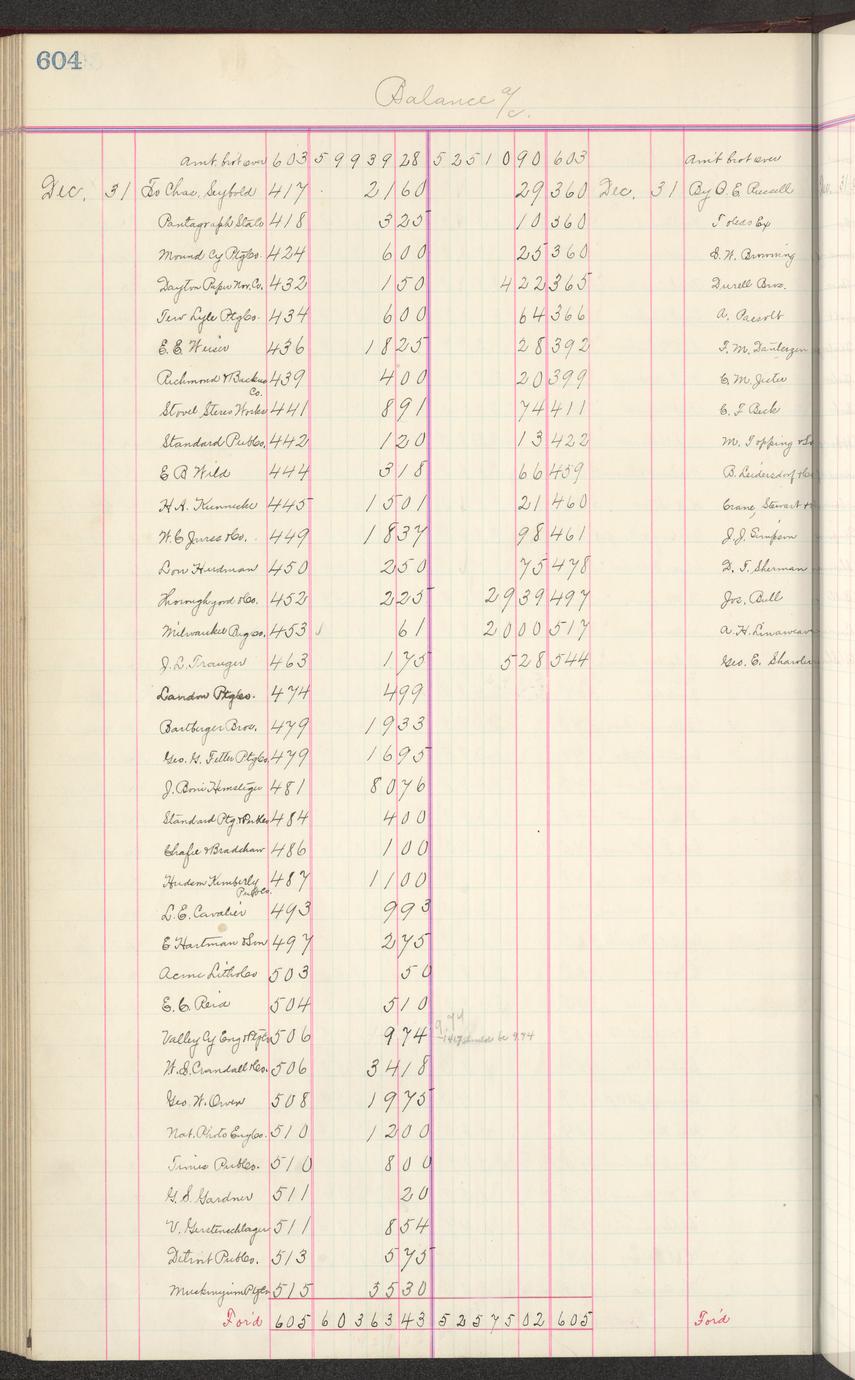 604
Balance a/c.
Amt brot over 603 59939 28 52510 90 603 Amt brot over
Dec. 31 To Chas. Seybold 417 21 60 29 360 Dec. 31 By O. E. Russell
Pantagraph Sta Co 418 3 25 10 360 Toledo Ex
Mound Cy Ptg Co. 424 6 00 25 360 S. W. Browning
Dayton Paper Nov. Co. 432 1 50 4 22 365 Durell Bros.
Tew Lyle Ptg Co. 434 6 00 64 366 A. Paesolt
E. E. Weiser 436 18 25 28 392 T. M. Dantergen
Richmond & Backus Co. 439 4 00 20 399 C. M. Jeter
Stovel Stereo Works 441 8 91 74 411 C. F Beck
Standard Pub Co. 442 1 20 13 422 M. Topping & So
E B Wild 444 3 18 66 459 B. Leidersdorf & Co
H. A. Kunnecke 445 15 01 21 460 Crane, Stewart &
W. C Jurss & Co. 449 18 37 98 461 J. J. Simpson
Lon Hurdman 450 2 50 75 478 D. F. Sherman
Thoroughgood & Co. 452 2 25 29 39 497 Jos. Bull
Milwaukee Bag Co. 453 61 20 00 517 A. H. Linaweav
J. L. Trauger 463 1 75 5 28 544 Geo. E. Sharder
Landon Ptg Co. 474 4 99
Bartberger Bros. 479 19 33
Geo. G. Fetter Ptg Co 479 16 95
J. Boni Hemsteger 481 80 76
Standard Ptg. & Pub Co 484 4 00
Chafie & Bradshaw 486 1 00
Hudson Kimberly Pub Co. 487 11 00
L. E. Cavalier 493 9 93
E Hartman & Son 497 2 75
Acme Litho Co 503 50
E. C. Reid 504 5 10
9.94
Valley Cy Eng & Ptg Co 506 9 74 should be 9.94
W. S. Crandall & Co. 506 34 18
Geo. W. Owen 508 19 75
Nat. Photo Eng Co. 510 12 00
Times Pub Co. 510 8 00
G. S. Gardner 511 20
V. Gerstenschlager 511 8 54
Detroit Pub Co. 513 5 75
Muskingum Ptg Co 515 35 30
For'd 605 60363 43 52575 02 605 For'd